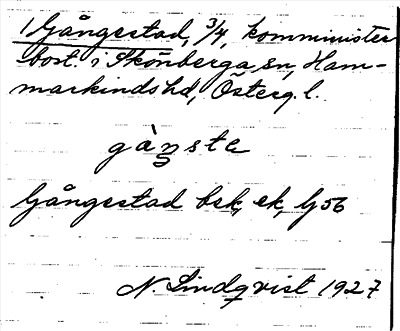 1 Gångestad, 3/4, komminister
bost. i Skönberga sn, Ham-
markinds hd, Österg. l.
gàŋste
Gångestad bek, ek, G 56
N. Lindqvist 1927